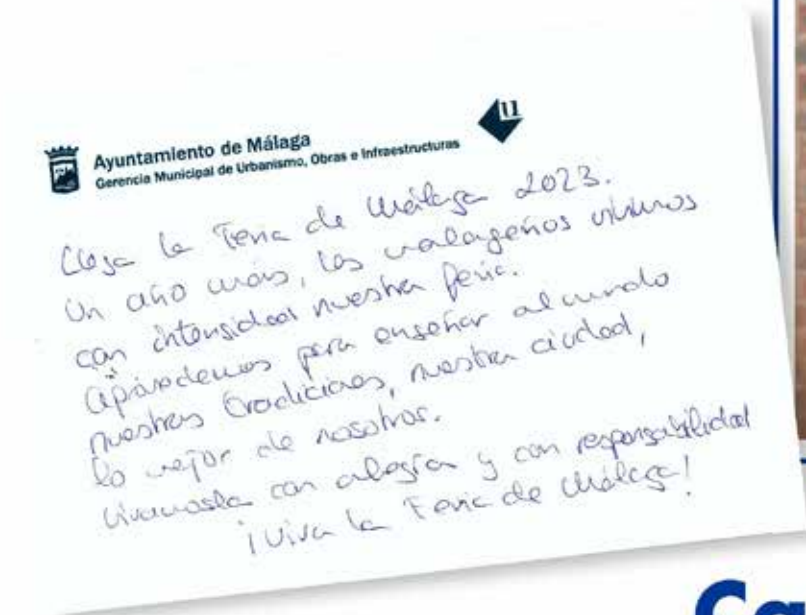 Ayuntamiento de Málaga
Gerencia Municipal de Urbanismo, Obras e Infraestructuras
Llega la Feria de Málaga 2023.
Un año más, los malagueños vivimos
con intensidad nuestra feria.
para enseñar al mundo
nuestras tradiciones, nuestra ciudad,
lo mejor de nosotros.
Vivamosla con alegría y con responsabilidad
¡Viva la Feria de Málaga!